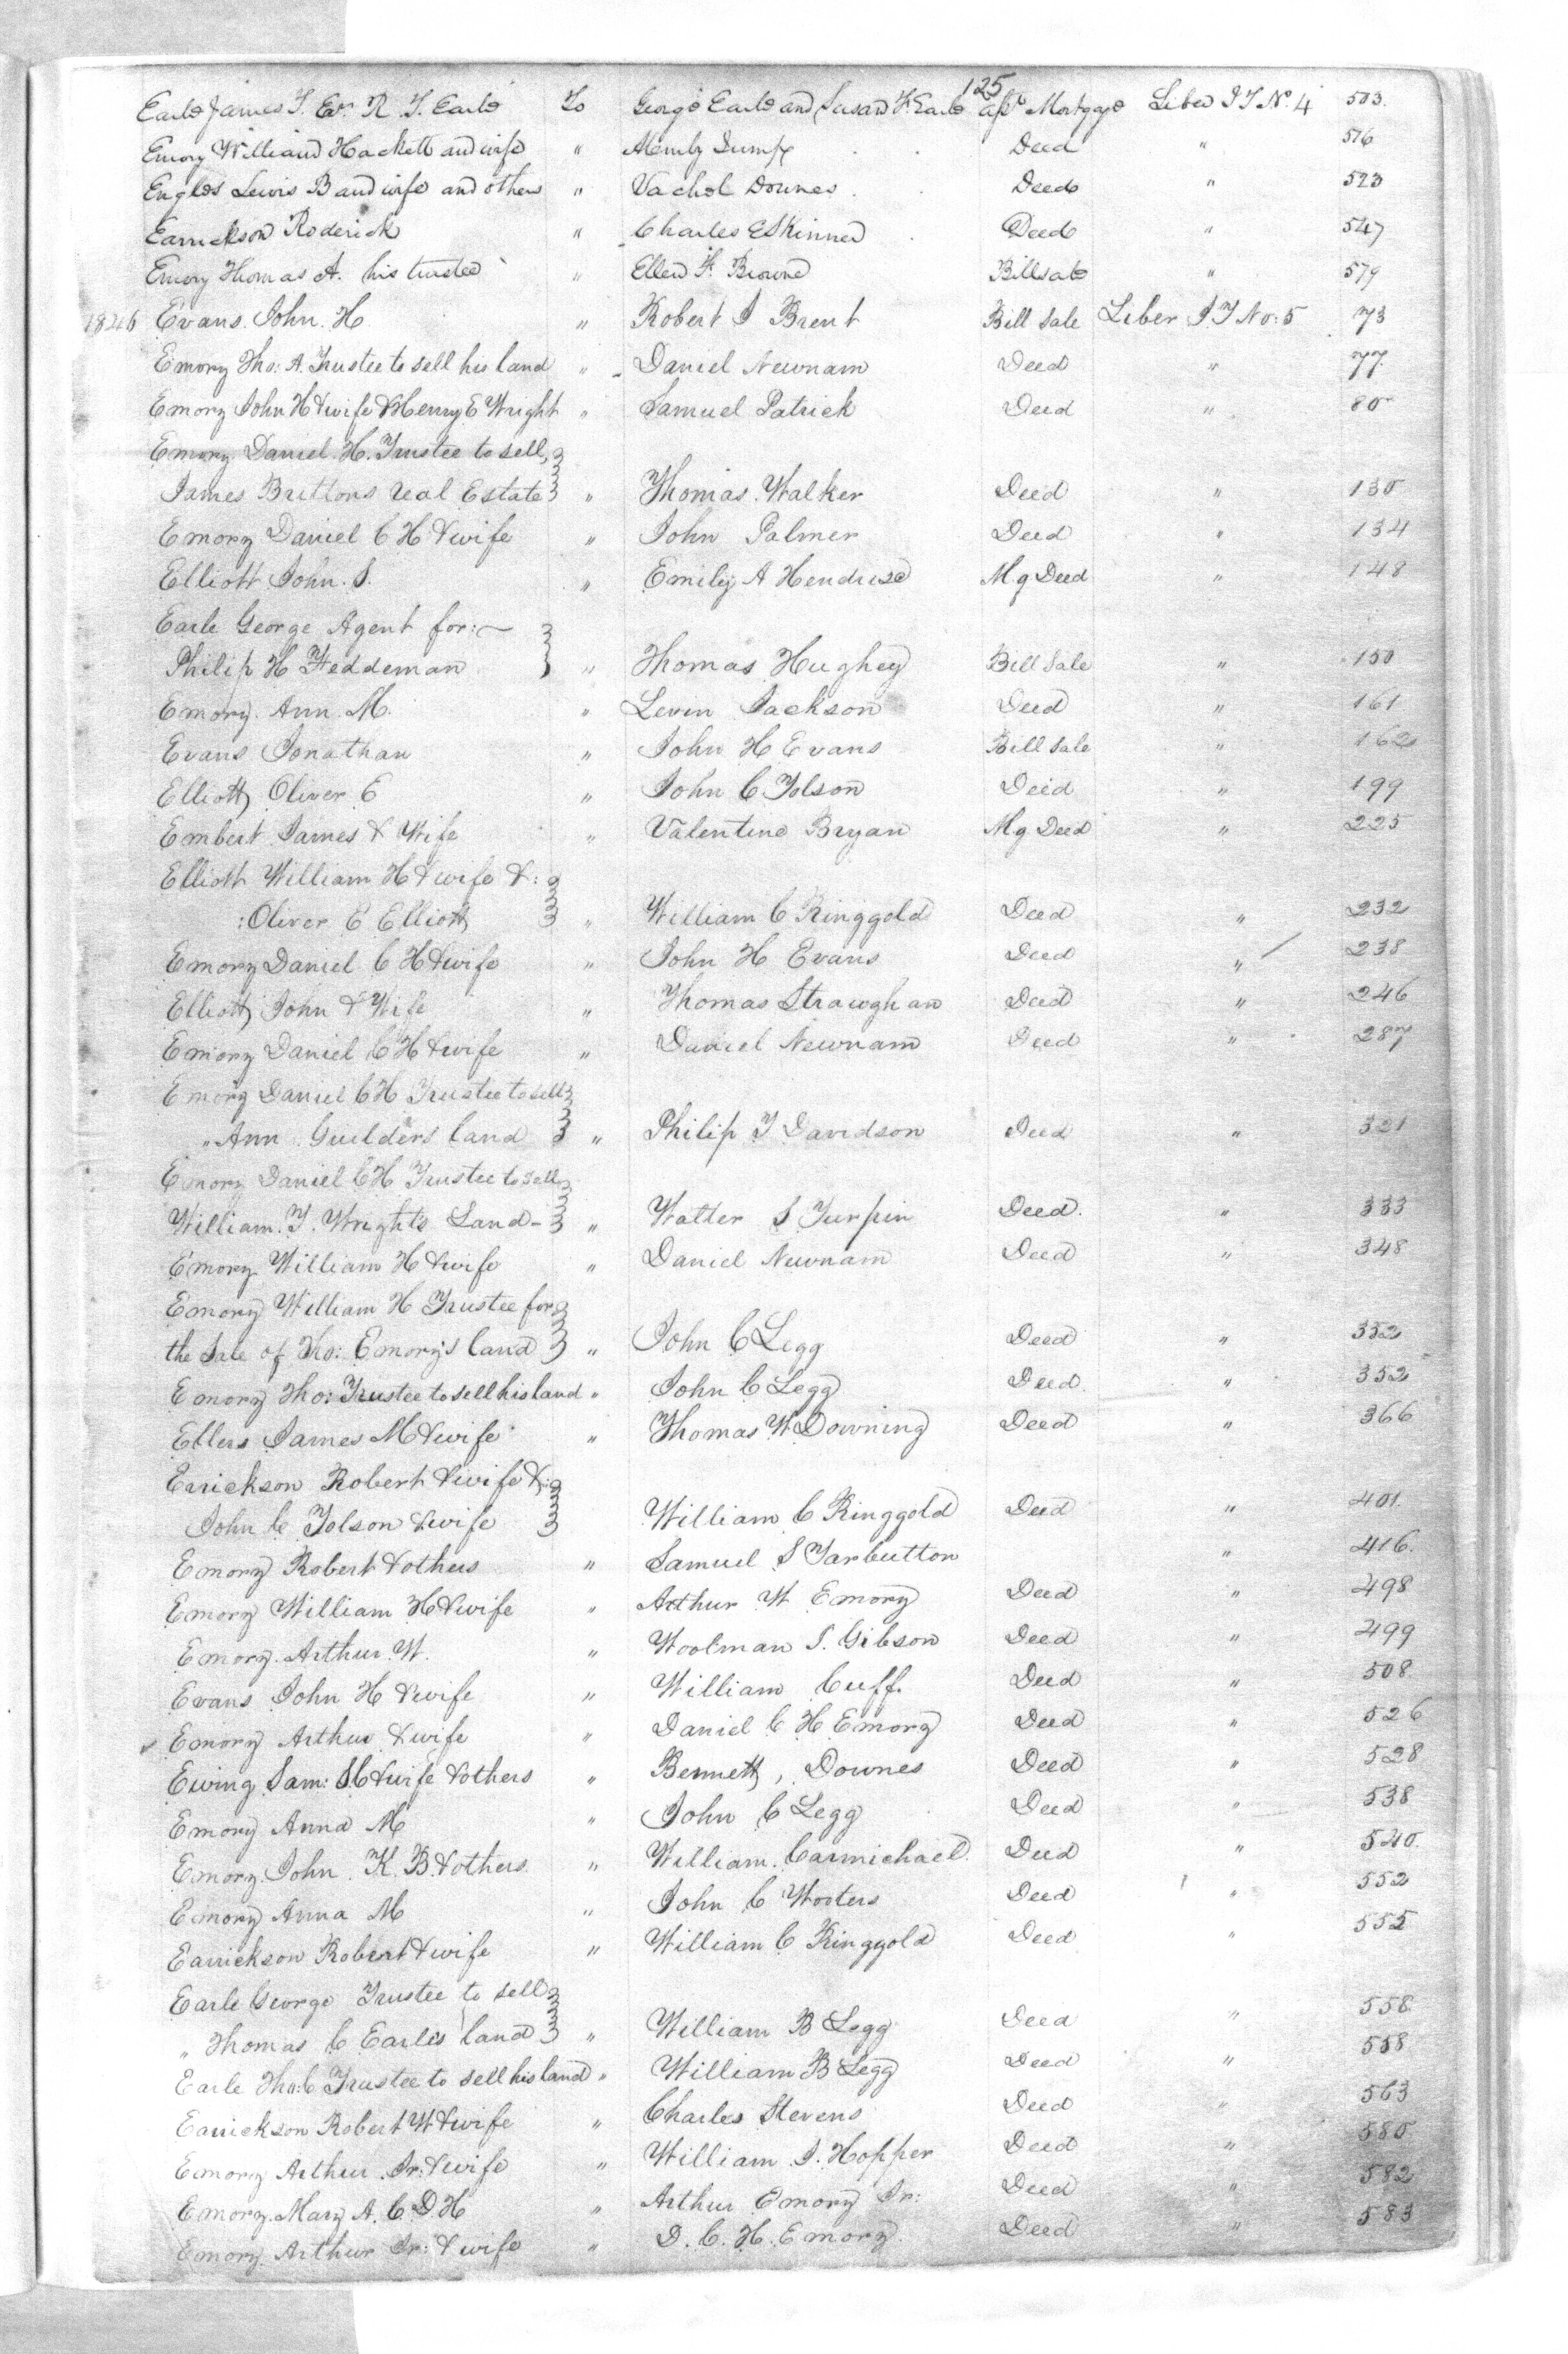 125
Earle James T. Exr. R. T. Earle To George Earle and Susan F. Earle asst Mortgage Liber J T No. 4 503.
Emory William Hackett and wife " Dump Deed " 516
Engles Lewis B and wife and others " Vachel Downes Deed " 523
Earrickson Roderick " Charles E Skinner Deed " 547
Emory Thomas A. his trustee " Ellen F. Browne Bill sale " 579
1846 Evans. John. H " Robert J Brent Bill Sale Liber J T No: 5 73
Emory Tho: A. Trustee to sell his land " Daniel Newnam Deed " 77
Emory John H & wife & Henry E Wright " Samuel Patrick Deed " 80
Emory Daniel. H. Trustee to sell,
James Brittons real Estate " Thomas. Walker Deed " 130
Emory Daniel C H & wife " John Palmer Deed " 134
Elliott John. S. " Emily A Hendrise Mg Deed " 148
Earle George Agent for:
Philip H Feddeman " Thomas Hughey Bill Sale " 150
Emory. Ann. M. " Levin Jackson Deed " 161
Evans Jonathan " John H Evans Bill Sale " 162
Elliott Oliver E " John C Tolson Deed " 199
Embert James & Wife " Valentine Bryan Mg Deed " 225
Elliott William H & wife &:
:Oliver E Elliott " William C Ringgold Deed " 232
Emory Daniel C H & wife " John H Evans Deed " 238
Elliott John & Wife " Thomas Strawghan Deed " 246
Emory Daniel C H & wife " Daniel Newnam Deed " 287
Emory Daniel C H Trustee to sell
" Ann Guilders land " Philip T Davidson Deed " 321
Emory Daniel C H Trustee to sell
William. T. Wright's Land- " Walter S Turpin Deed. " 333
Emory William H & wife " Daniel Newnam Deed " 348
Emory William H Trustee for
the Sale of Tho: Emory's land " John C Legg Deed " 352
Emory Tho: Trustee to sell his land " John C Legg Deed " 352
Ellers James M & wife " Thomas W Downing Deed " 366
Errickson Robert & wife &:
John C Tolson & wife William C Ringgold Deed " 401.
Emory Robert & others " Samuel S Tarbutton " 416.
Emory William H & wife " Arthur W Emory Deed " 498
Emory. Arthur. W. " Woolman J. Gibson Deed " 499
Evans John H & wife " William Cuff. Deed " 508
Emory Arthur & wife " Daniel C H Emory Deed " 526
Ewing Sam: & wife & others " Bennett, Downes Deed " 528
Emory Anna M " John C Legg Deed " 538
Emory. John. K. B. & others " William. Carmichael. Deed " 540.
Emory Anna M " John C Wooters Deed " 552
Earrickson Robert & wife " William C Ringgold Deed " 555
Earle George Trustee to sell
" Thomas C Earle's land " William B Legg Deed " 558
Earle Tho: C Trustee to sell his land " William B Legg Deed " 558
Earrickson Robert W & wife " Charles Stevens Deed " 563
Emory Arthur Jr: & wife " William J. Hopper Deed " 580
Emory. Mary A. C. D. H " Arthur Emory Jr: Deed " 582
Emory Arthur Jr: & wife " D. C. H. Emory Deed " 583